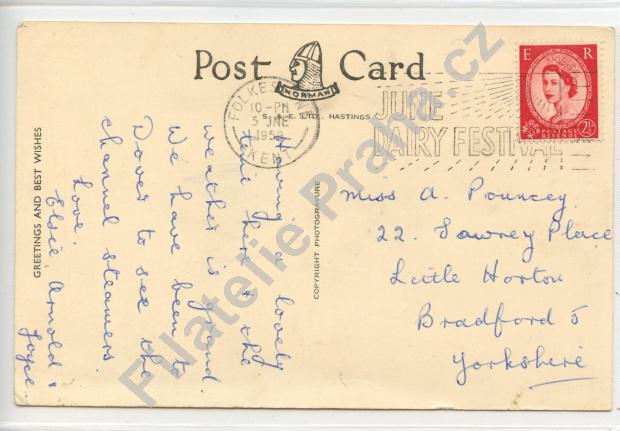 Post Card
NORMAN
S. & E. LTD., HASTINGS
FOLKESTONE
10 - PM
5 JNE
1958
KENT
JUNE
DAIRY FESTIVAL
E R
POSTAGE
REVENUE
2½
GREETINGS AND BEST WISHES
COPYRIGHT PHOTOGRAVURE
Having a lovely
time here & the
weather is grand.
We have been to
Dover to see the
channel steamers.
Love.
Elsie Arnold &
Joyce
Miss A. Pouncey
22. Lawrey Place
Little Horton
Bradford 5
Yorkshire
Filatelie Praha.cz